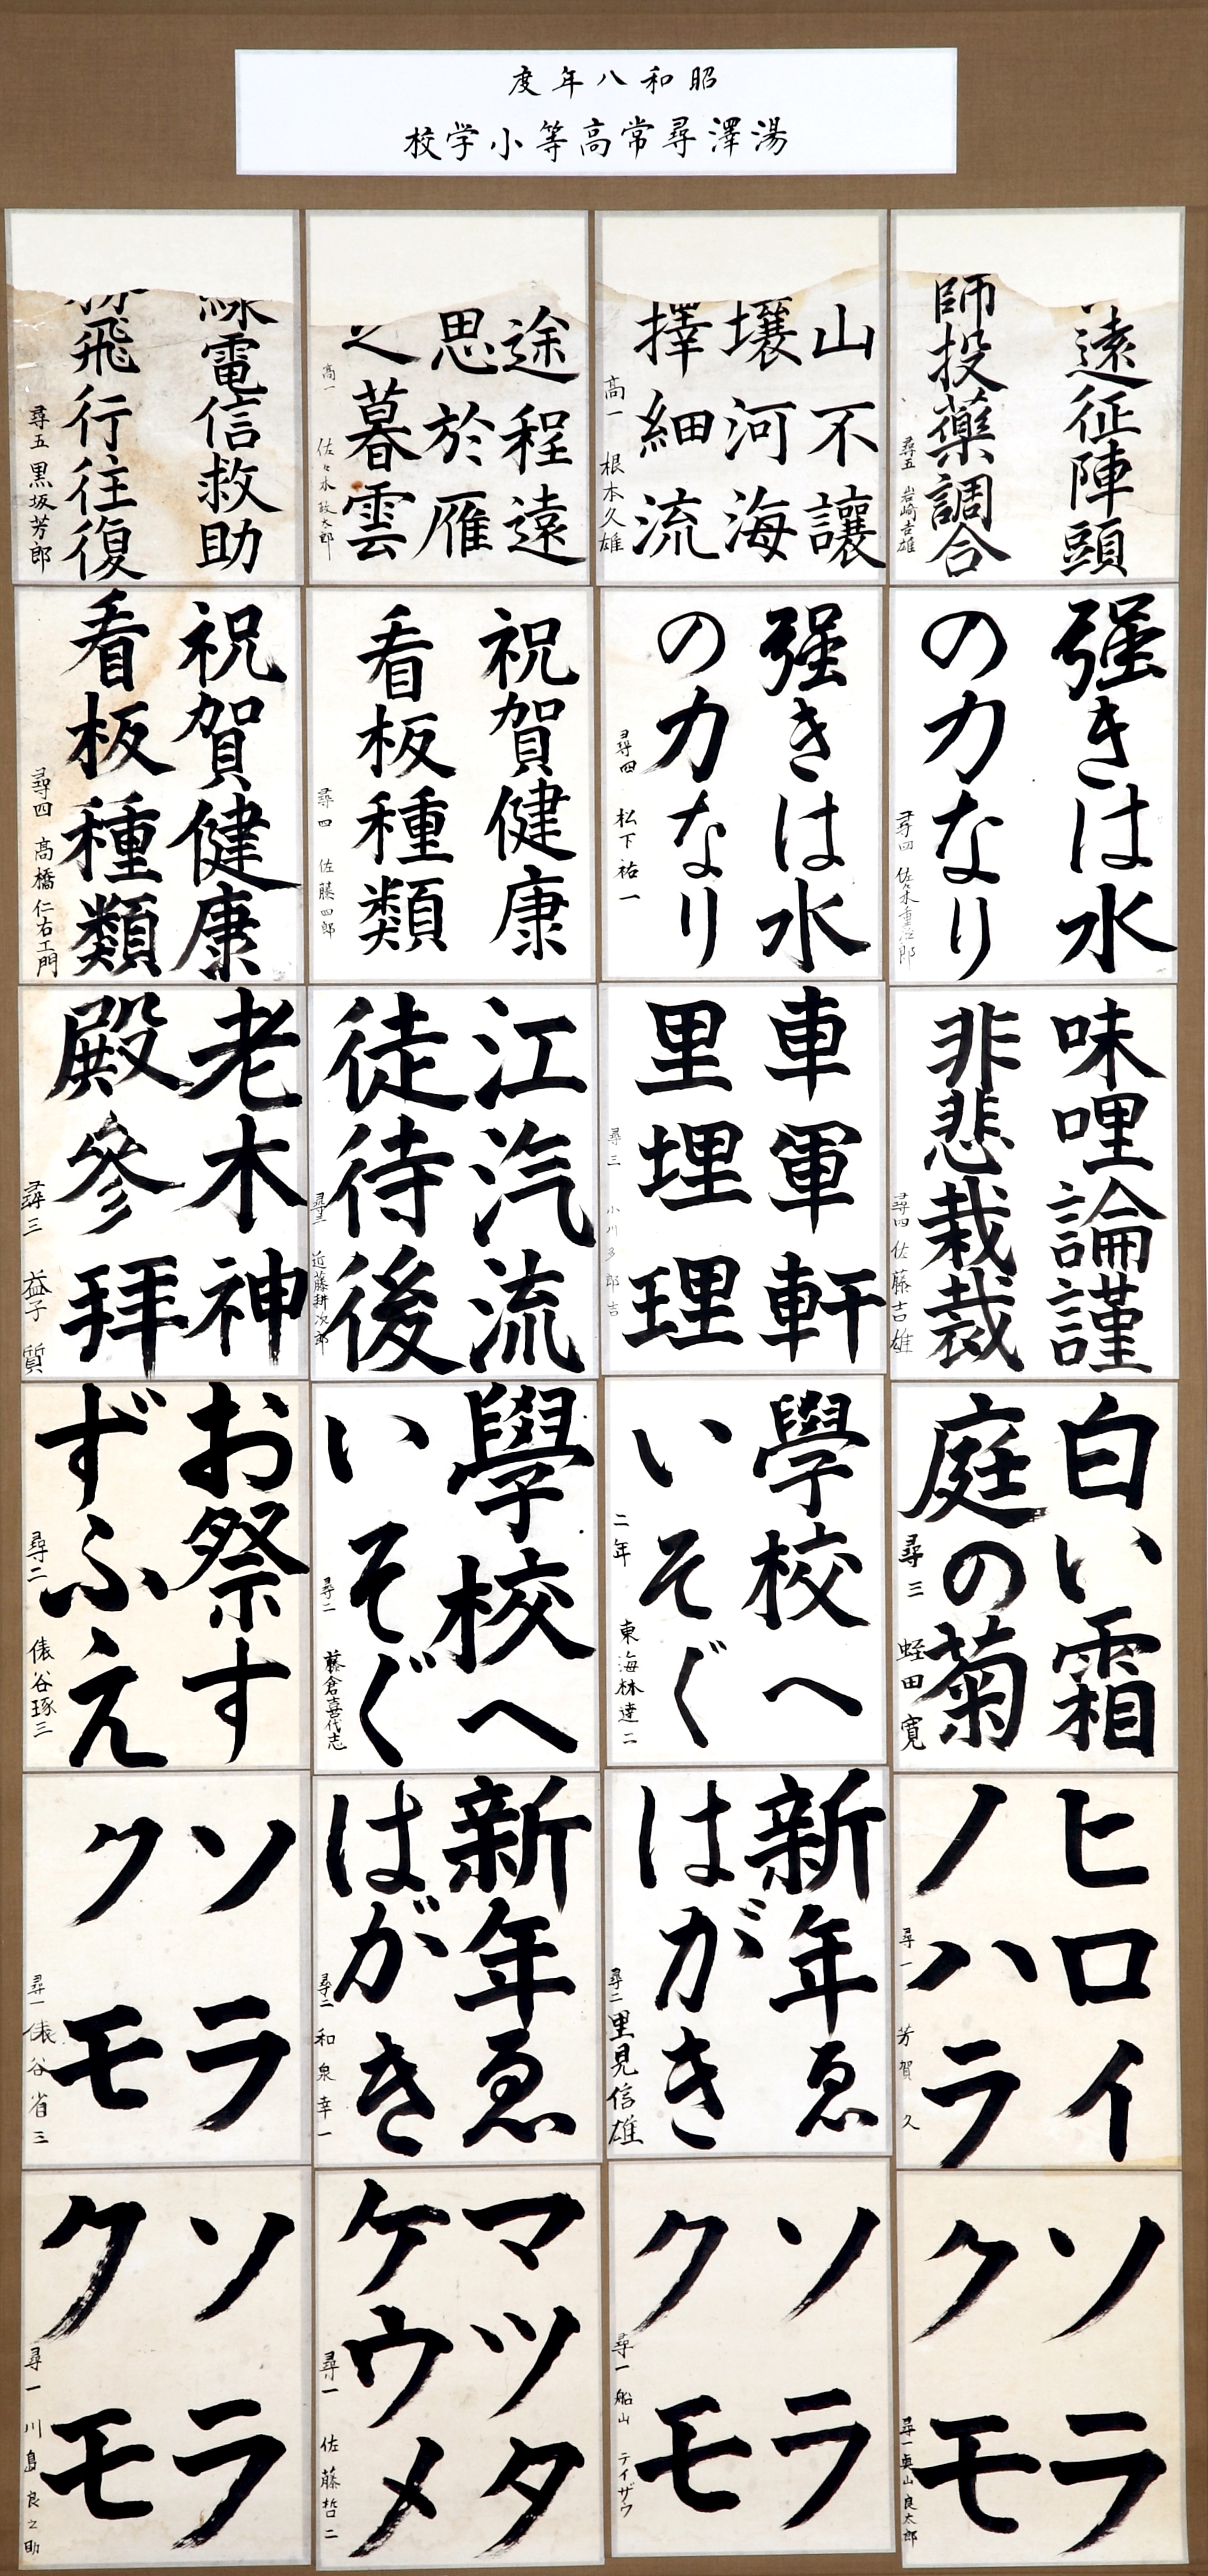 昭和八年度
湯澤尋常高等小学校
遠征陣頭
師投藥調合
尋五 岩崎吉雄
山不讓
壤河海
擇細流
高一 根本久雄
途程遠
思於雁
之暮雲
高一 佐々木政太郎
線電信救助
飛行往復
尋五 黒坂芳郎
强きは水
の力なり
尋四 佐々木重治郎
强きは水
の力なり
尋四 松下祐一
祝賀健康
看板種類
尋四 佐藤四郎
祝賀健康
看板種類
尋四 高橋仁右エ門
味哩論謹
非悲栽裁
尋四 佐藤吉雄
車軍軒
里埋理
尋三 小川多郎吉
江汽流
徒待後
尋三 近藤耕次郎
老木神
殿參拜
尋三 益子質
白い霜
庭の菊
尋三 蛭田寛
學校へ
いそぐ
二年 東海林達二
學校へ
いそぐ
尋二 藤倉喜代志
お祭す
ずふえ
尋二 俵谷琢三
ヒロイ
ノハラ
尋一 芳賀久
新年ゑ
はがき
尋二 里見信雄
新年ゑ
はがき
尋二 和泉幸一
ソラ
クモ
尋一 俵谷省三
ソラ
クモ
尋一 奥山良太郎
ソラ
クモ
尋一 船山テイザウ
マツタ
ケウメ
尋一 佐藤哲二
ソラ
クモ
尋一 川島良之助